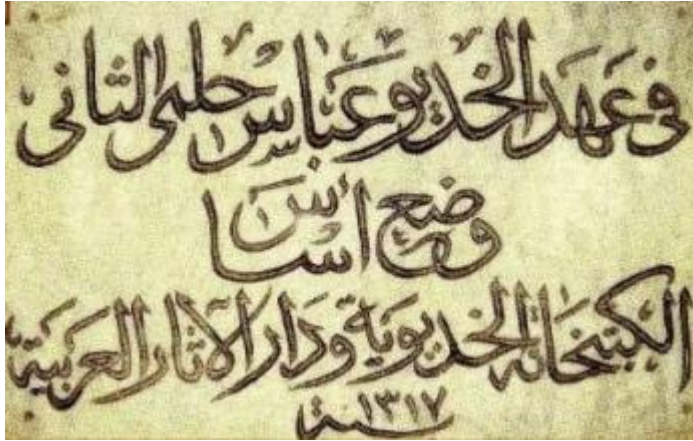 في عهد الخديو عباس حلمى الثانى
وضع أساس
الكتبخانة الخديوية ودار الآثار العربية
سنة ١٣١٧